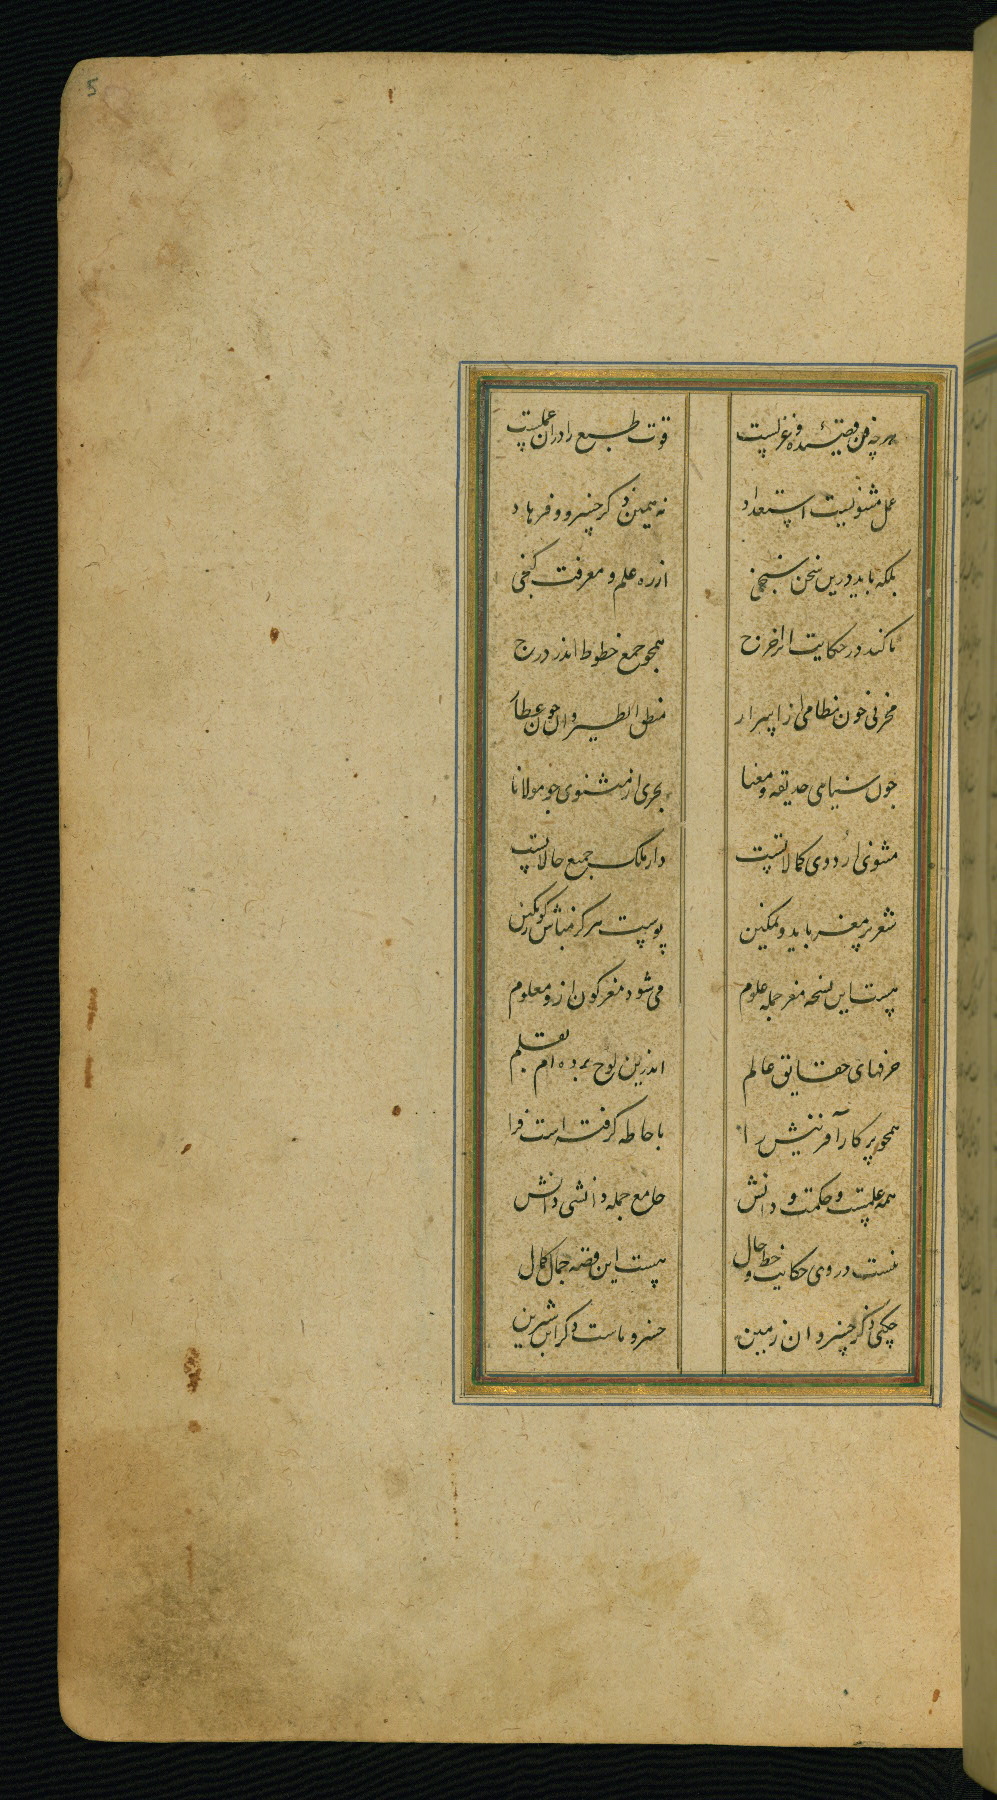 5
هرچه فن قصیده و غزلست قوت طبع را در آن عملست
عمل مثنویست استعداد نه همین ذکر خسرو و فرهاد
بلکه باید درین سخن سنجی از ره علم و معرفت گنجی
تا کند در حکایت الزخرج همچو جمع خطوط اندر درج
مخزنی چون نظامی از اسرار منطق الطیر و ان چون عطار
چون سنایی حدیقه و معنا بحری از مثنوی چو مولانا
مثنوی از ردوی کمالاتست دار ملک جمیع حالاتست
شعر پر مغز باید و نمکین پوست هرگز مباش گو رنگین
هست این نسخه مغز جمله علوم می شود مغز کون ازو معلوم
حرفهای حقایق عالم اندرین لوح برده ام بقلم
همچو پرکار آفرینش را باحاطه گرفته است فرا
همه علمست و حکمت و دانش جامع جمله دانشی دانش
نیست در وی حکایت خط و خال هست این قصه جمال کمال
چکنی ذکر خسروان زمین خسرو ماست ذکر این شیرین